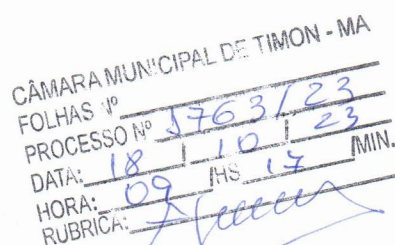 CÂMARA MUNICIPAL DE TIMON - MA
FOLHAS Nº
PROCESSO Nº 1763/23
DATA: 18 / 10 / 23
HORA: 09 /HS 17 /MIN.
RUBRICA: